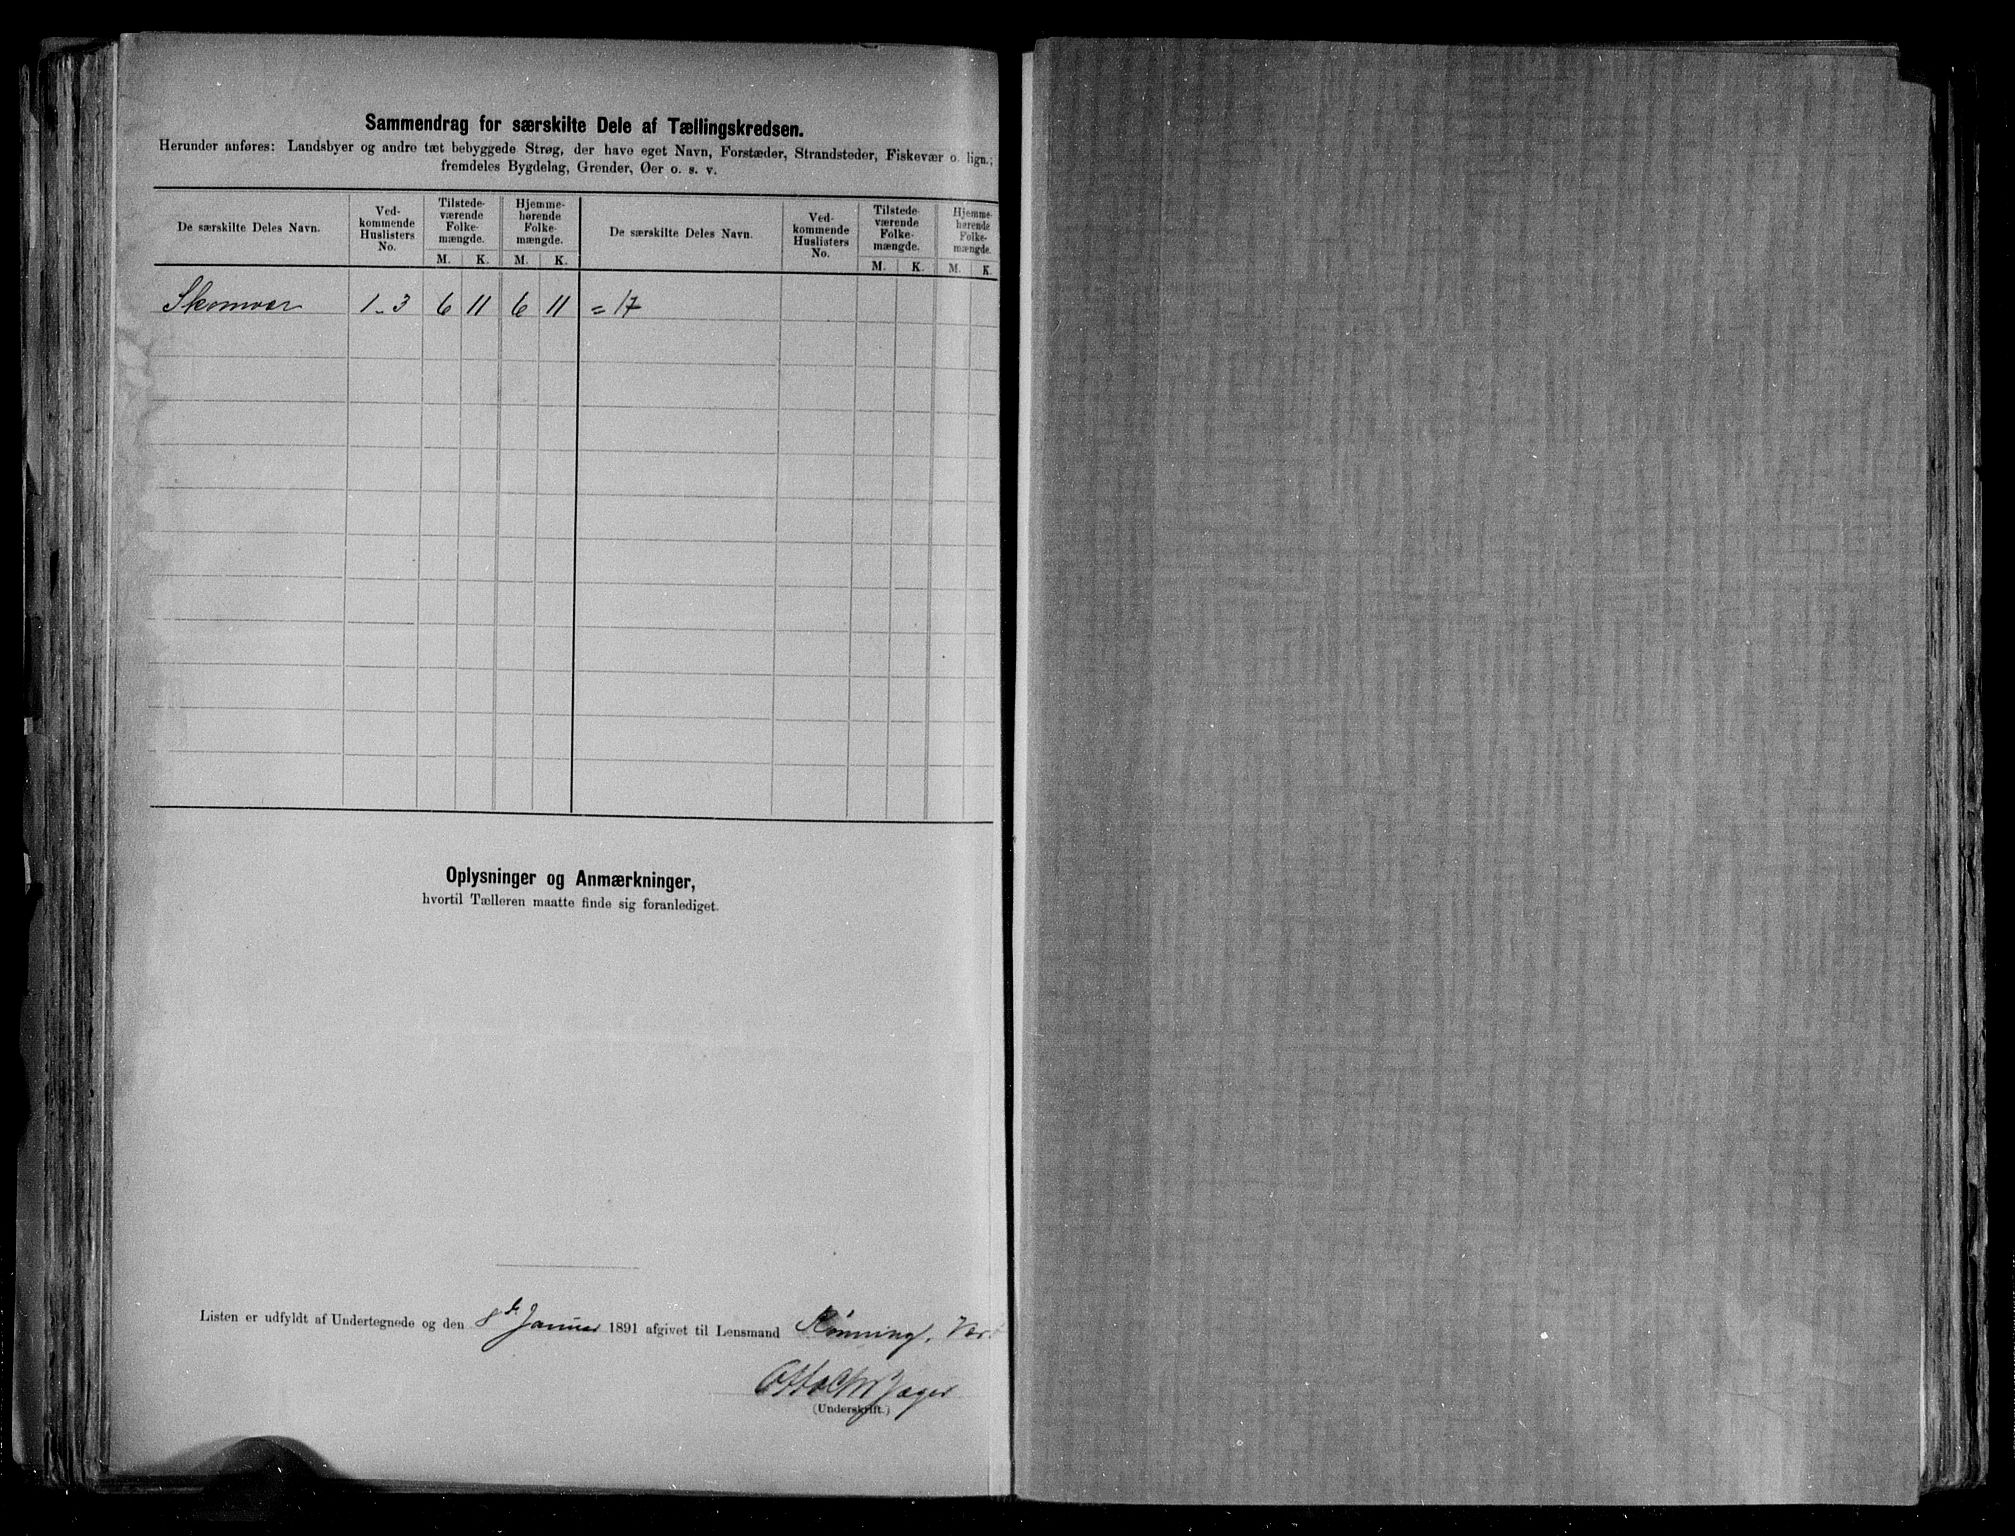 Sammendrag for særskilte Dele af Tællingskredsen.
Herunder anføres: Landsbyer og andre tæt bebyggede Strøg, der have eget Navn, Forstæder, Strandsteder, Fiskevær o. lign.;
fremdeles Bygdelag, Grender, Øer o. s. v.
De særskilte Deles Navn. Ved-kommende Huslisters No. Tilstede-værende Folke-mængde. Hjemme-hørende Folke-mængde. De særskilte Deles Navn. Ved-kommende Huslisters No. Tilstede-værende Folke-mængde. Hjemme-hørende Folke-mængde.
M. K. M. K. M. K. M. K.
Skomvær 1-3 6 11 6 11 = 17
Oplysninger og Anmærkninger,
hvortil Tælleren maatte finde sig foranlediget.
Listen er udfyldt af Undertegnede og den 8de Januar 1891 afgivet til Lensmand Rönning,
Jæger
(Underskrift.)